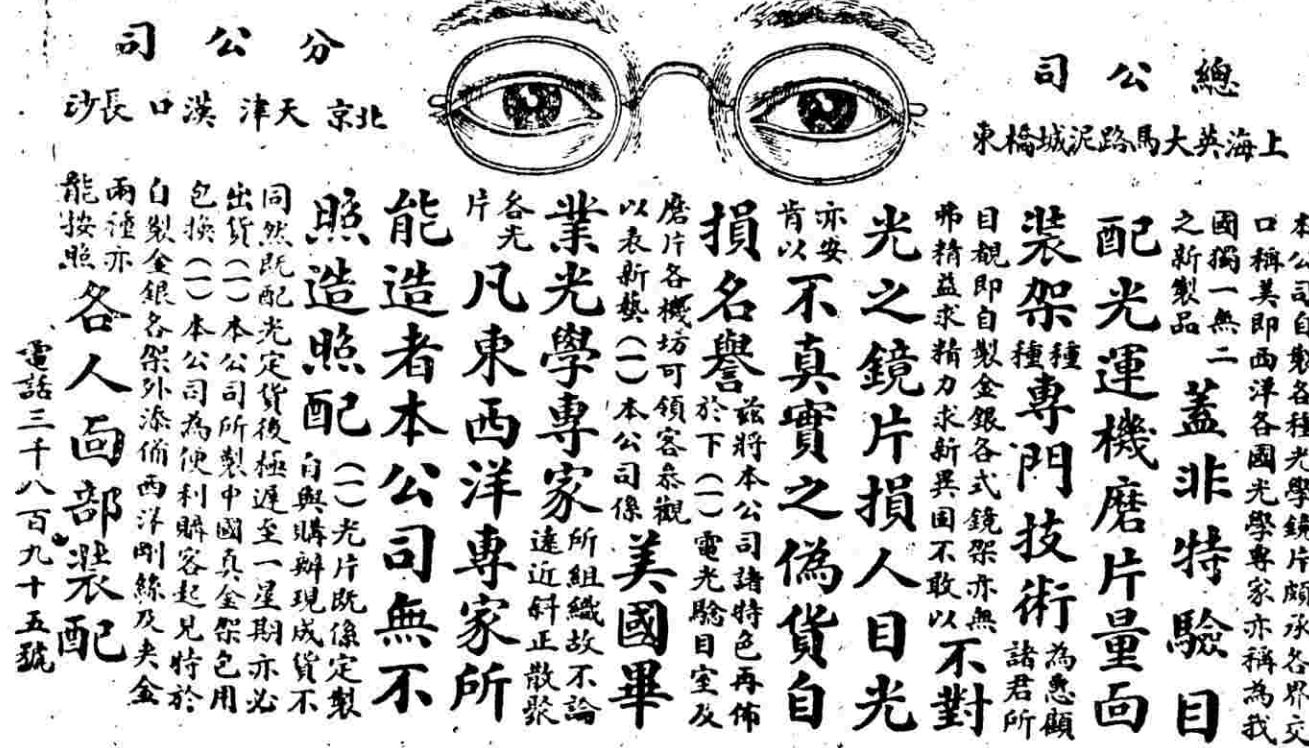 總公司
上海英大馬路泥城橋東
分公司
北京 天津 漢口 長沙
本公司自製各種光學鏡片頗承各界交
口稱美即西洋各國光學專家亦稱為我
國獨一無二
之新製品
蓋非特驗目
配光運機磨片量面
裝架
種
種
專門技術
為惠顧
諸君所
目覩即自製金銀各式鏡架亦無
弗精益求精力求新異固不敢以
不對
光之鏡片損人目光
亦安
肯以
不真實之偽貨自
損名譽
茲將本公司諸特色再佈
於下(一)電光驗目室及
磨片各機坊可領客叅觀
以表新藝(一)本公司係
美國畢
業光學專家
所組織故不論
遠近斜正散聚
各光
片
凡東西洋專家所
能造者本公司無不
照造照配
(一)光片既係定製
自與購辦現成貨不
同然既配光定貨後極遲至一星期亦必
出貨(一)本公司所製中國真金架包用
包換(一)本公司為便利購客起見特於
自製金銀各架外添備西洋剛絲及夾金
兩種亦
能按照
各人面部裝配
電話三千八百九十五號